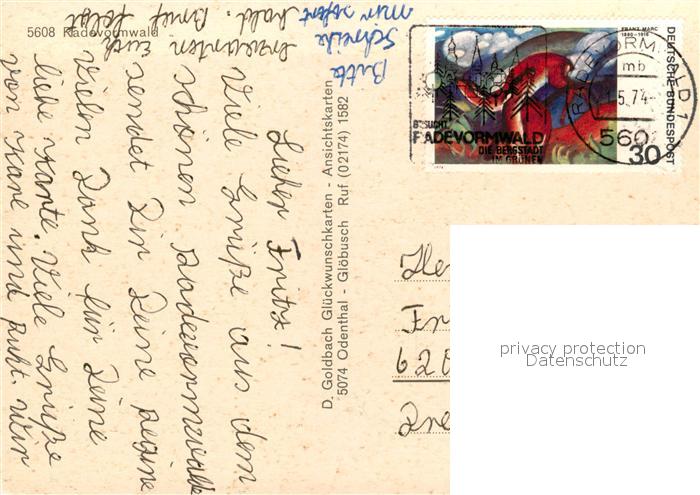 5608 Radevormwald
Bitte
Schreibe
mir sofort
Lieber Fritz!
Viele Grüße aus dem
schönen Radevormwalde
sendet Dir Deine Regine
Vielen Dank für Deine
liebe Karte. Viele Grüße
von Karl und Ruht. Wir
erwarten Euch
bald. Brief folgt
D. Goldbach Glückwunschkarten - Ansichtskarten
5074 Odenthal - Glöbusch Ruf (02174) 1582
FRANZ MARC
1880-1916
DEUTSCHE BUNDESPOST
30
BESUCHT
RADEVORMWALD
DIE BERGSTADT
IM GRÜNEN
RADEVORMWALD 1
mb
5.74
560
He
Fr
620
privacy protection
Datenschutz